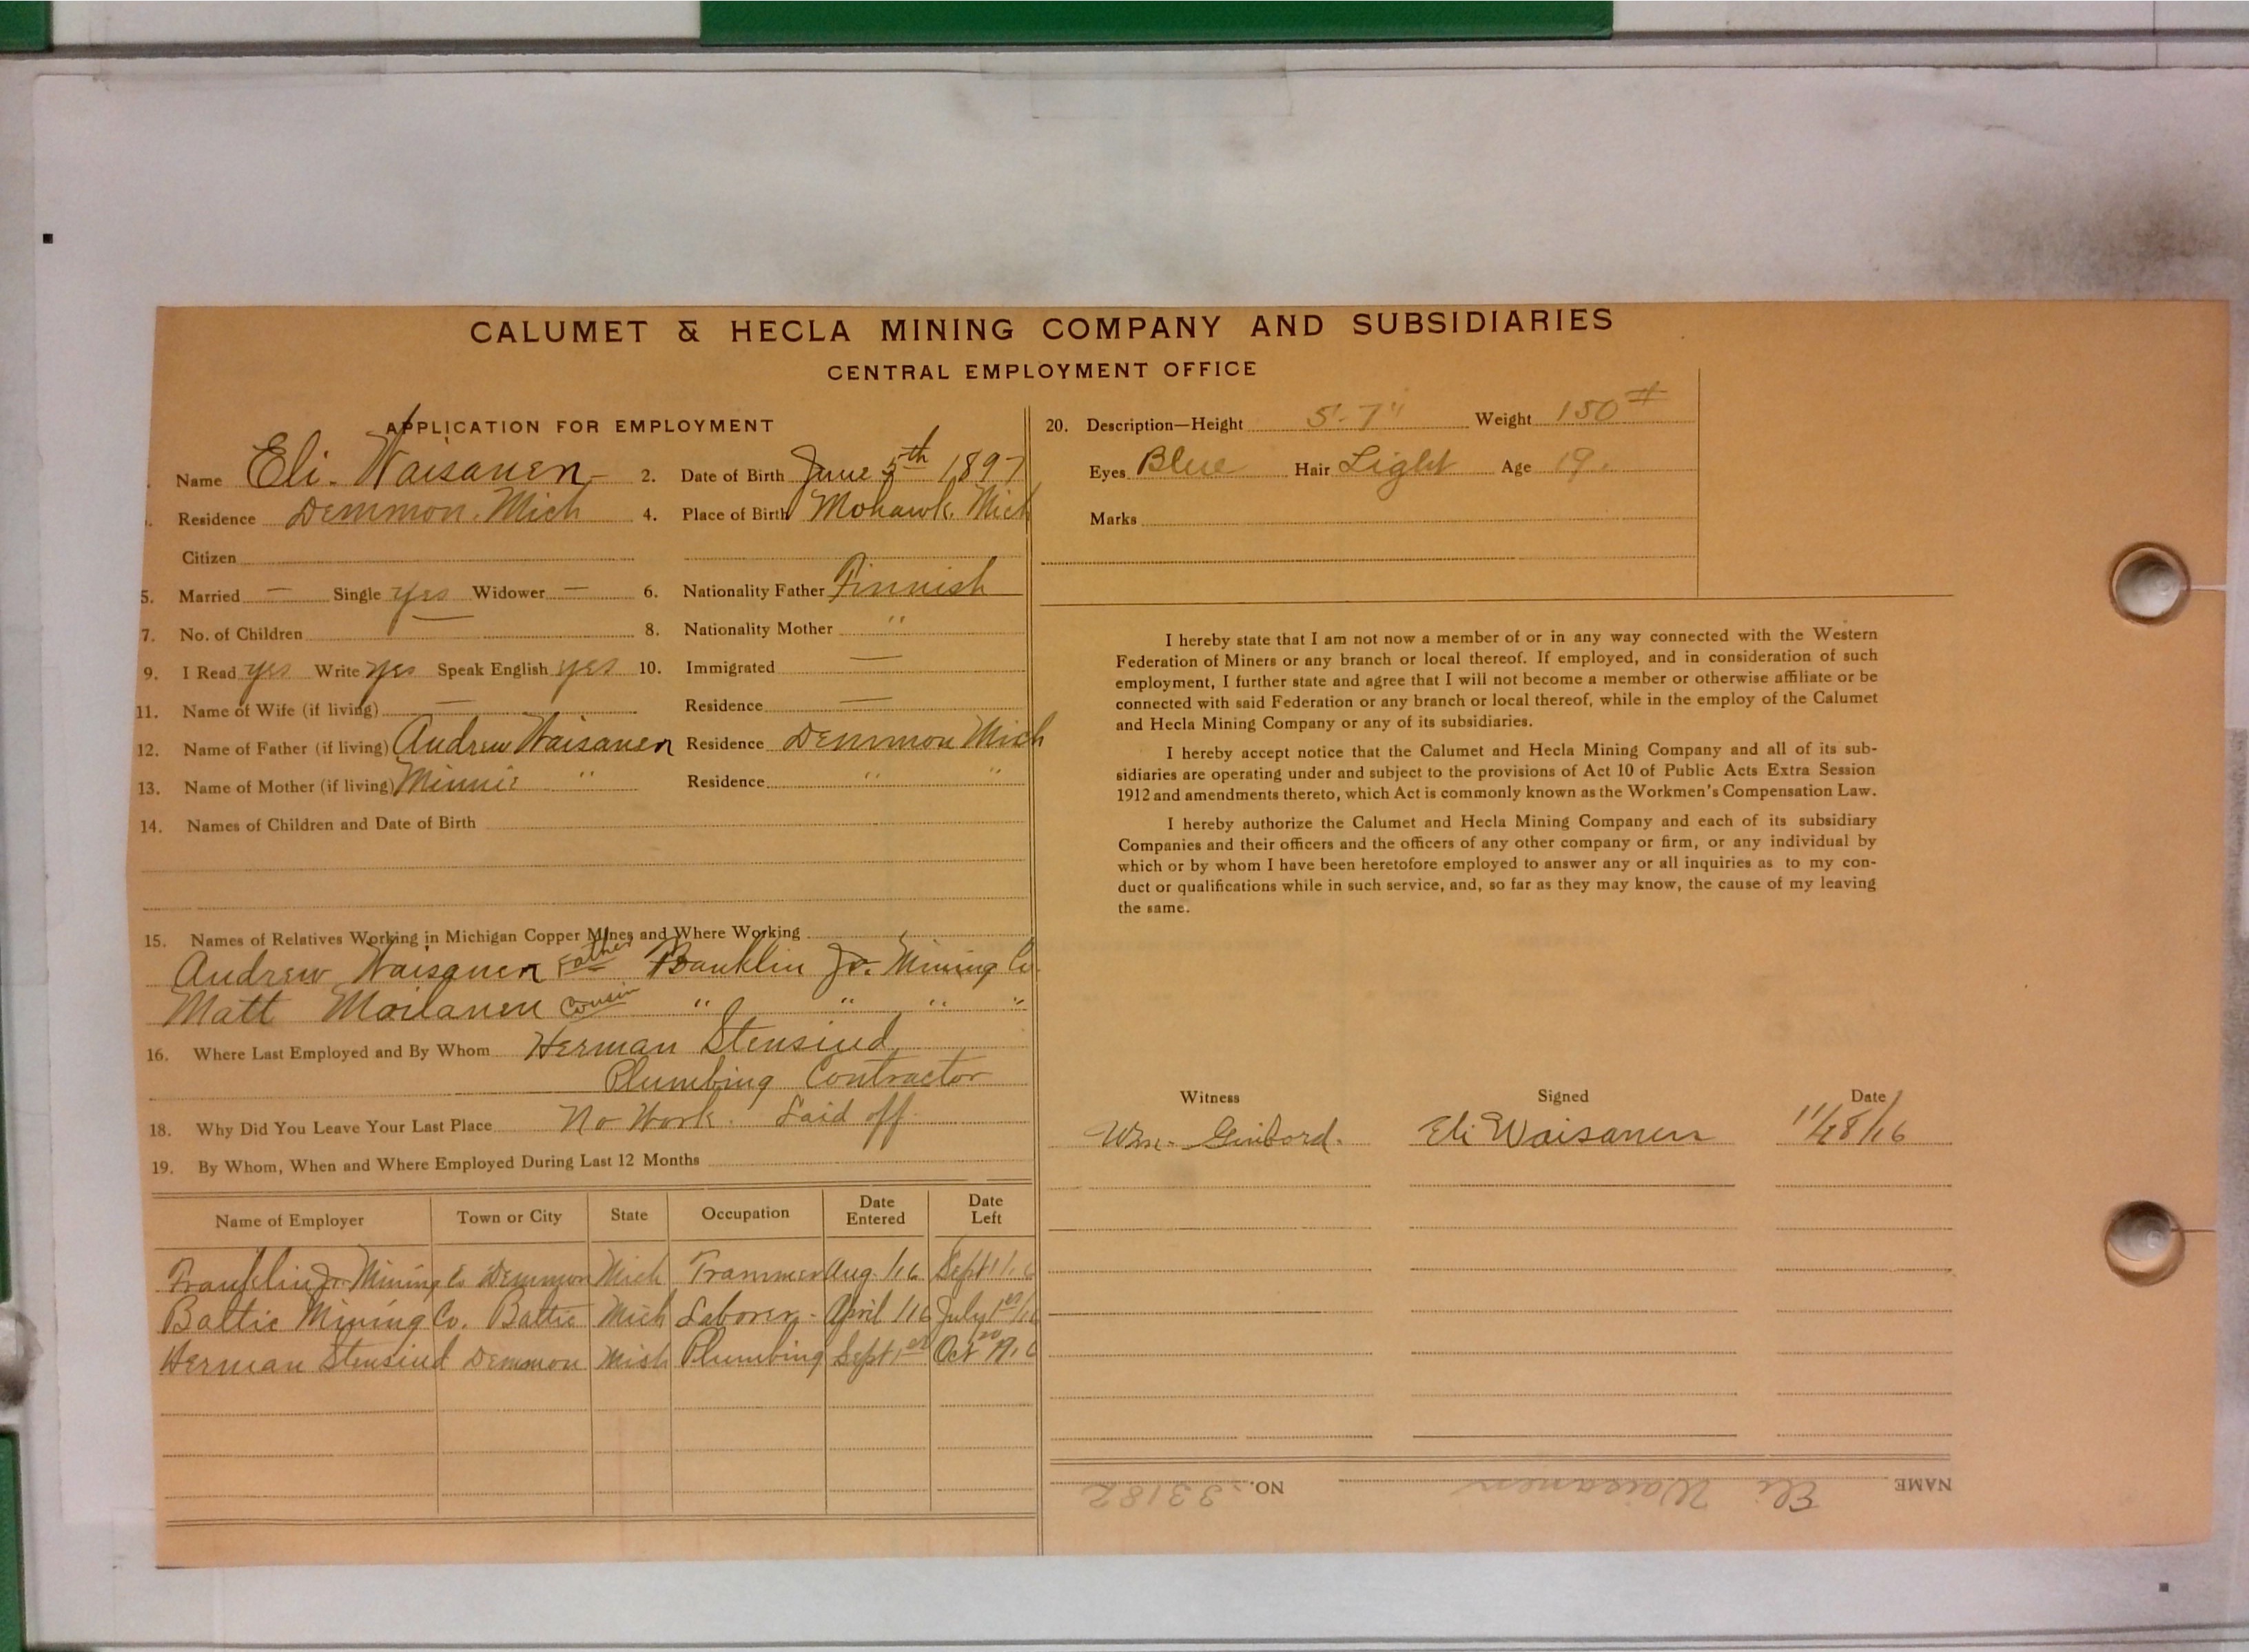 CALUMET & HECLA MINING COMPANY AND SUBSIDIARIES
CENTRAL EMPLOYMENT OFFICE
APPLICATION FOR EMPLOYMENT
Name Eli. Waisanen 2. Date of Birth June 5th 1897
Residence Demmon. Mich 4. Place of Birth Mohawk. Mich
Citizen
5. Married — Single yes Widower — 6. Nationality Father Finnish
7. No. of Children — 8. Nationality Mother "
9. I Read yes Write yes Speak English yes 10. Immigrated —
11. Name of Wife (if living) — Residence —
12. Name of Father (if living) Andrew Waisanen Residence Demmon Mich
13. Name of Mother (if living) Minnie " Residence " "
14. Names of Children and Date of Birth
15. Names of Relatives Working in Michigan Copper Mines and Where Working
Andrew Waisanen Father Franklin Jr. Mining Co.
Matt Moilanen Cousin " " " "
16. Where Last Employed and By Whom Herman Stensiud
Plumbing Contractor
18. Why Did You Leave Your Last Place No Work. Laid off
19. By Whom, When and Where Employed During Last 12 Months
Name of Employer Town or City State Occupation Date Entered Date Left
Franklin Jr. Mining Co Demmon Mich Trammer Aug. /16 Sept 1/16
Baltic Mining Co. Baltic Mich Laborer - April /16 July 1st/16
Herman Stensiud Demmon Mich Plumbing Sept 1st Oct
20. Description—Height 5'-7" Weight 150#
Eyes Blue Hair Light Age 19.
Marks
I hereby state that I am not now a member of or in any way connected with the Western
Federation of Miners or any branch or local thereof. If employed, and in consideration of such
employment, I further state and agree that I will not become a member or otherwise affiliate or be
connected with said Federation or any branch or local thereof, while in the employ of the Calumet
and Hecla Mining Company or any of its subsidiaries.
I hereby accept notice that the Calumet and Hecla Mining Company and all of its sub-
sidiaries are operating under and subject to the provisions of Act 10 of Public Acts Extra Session
1912 and amendments thereto, which Act is commonly known as the Workmen's Compensation Law.
I hereby authorize the Calumet and Hecla Mining Company and each of its subsidiary
Companies and their officers and the officers of any other company or firm, or any individual by
which or by whom I have been heretofore employed to answer any or all inquiries as to my con-
duct or qualifications while in such service, and, so far as they may know, the cause of my leaving
the same.
Witness Signed Date
Wm. Eli Waisanen 11/28/16
NAME Eli Waisanen NO. 33182